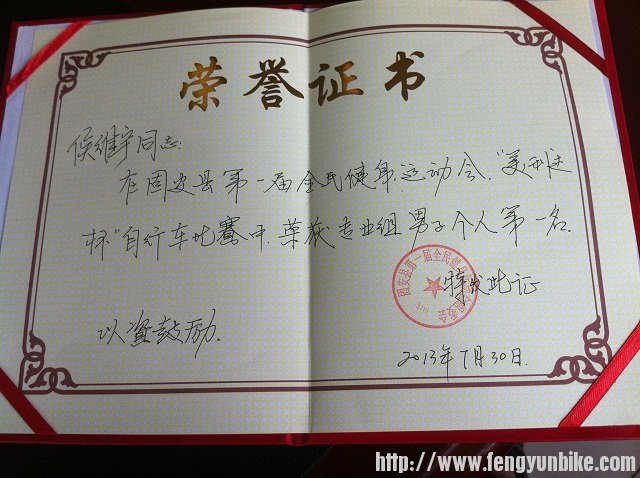 荣誉证书
侯维宇同志:
在固安县第一届全民健身运动会,"美利达
杯"自行车比赛中,荣获专业组男子个人第一名.
特发此证
以资鼓励.
2013年7月30日.
固安县第一届全民健身
http://www.fengyunbike.com